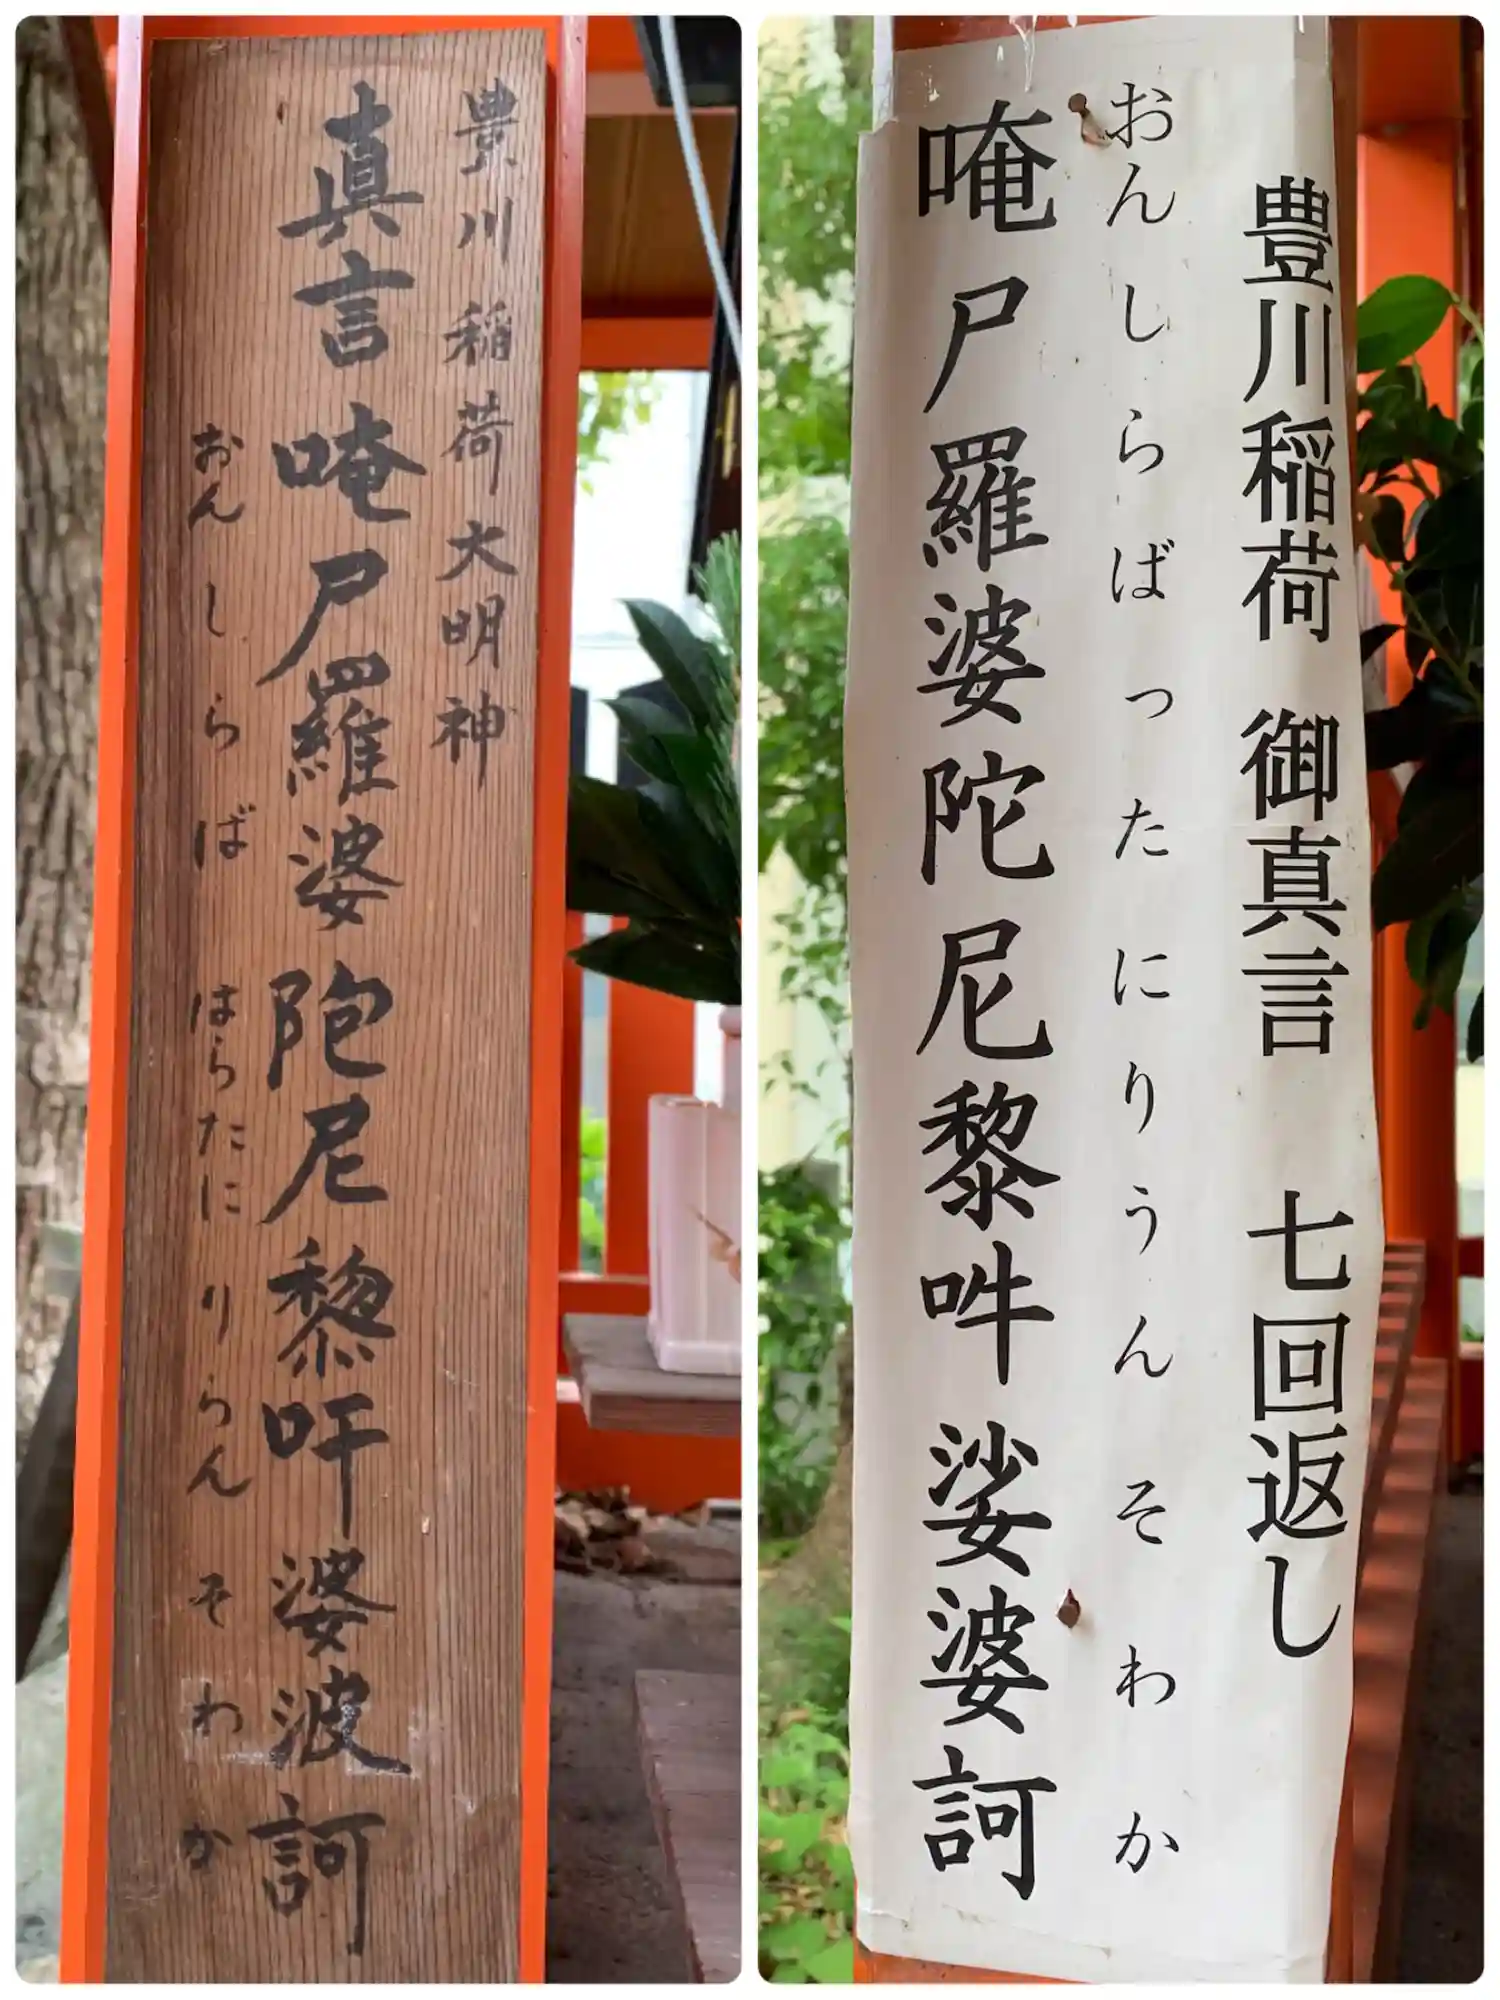 豊川稲荷大明神
真言 唵尸羅婆陀尼黎吽婆波訶
おんしらばはらたにりらんそわか
豊川稲荷 御真言 七回返し
おんしらばったにりうんそわか
唵尸羅婆陀尼黎吽娑婆訶